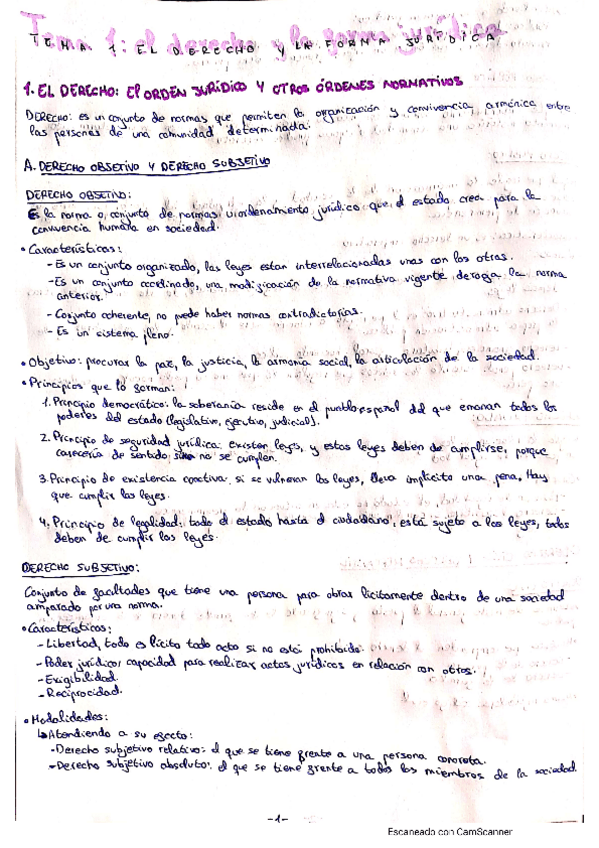 Tema 1: el derecho y la norma jurídica
TEMA 1: EL DERECHO Y LA FORMA JURÍDICA
1. EL DERECHO: El ORDEN JURÍDICO Y OTROS ÓRDENES NORMATIVOS
DERECHO: es un conjunto de normas que permiten la organización y convivencia armónica entre
las personas de una comunidad determinada.
A. DERECHO OBJETIVO Y DERECHO SUBJETIVO
DERECHO OBJETIVO:
Es la norma o conjunto de normas u ordenamiento jurídico que el estado crea para la
convivencia humana en sociedad.
• Características:
- Es un conjunto organizado, las leyes estan interrelacionadas unas con los otras.
- Es un conjunto coordinado, una modificación de la normativa vigente deroga la norma
anterior.
- Conjunto coherente, no puede haber normas contradictorias.
- Es un cistema pleno.
• Objetivo: procurar la paz, la justicia, la armonia social, la articulación de la sociedad.
• Principios que lo forman:
1. Principio democrático: la soberanía reside en el pueblo español del que emanan todos los
poderes del estado (legislativo, ejecutivo, judicial).
2. Principio de seguridad jurídica: existen leyes, y estas leyes deben de cumplirse, porque
carecería de sentido si no se cumplen.
3. Principio de existencia coactiva: si se vulneran las leyes, lleva implícito una pena, Hay
que cumplir las leyes.
4. Principio de legalidad: todo el estado hasta el ciudadano, está sujeto a las leyes, todos
deben de cumplir las leyes.
DERECHO SUBJETIVO:
Conjunto de facultades que tiene una persona para obrar lícitamente dentro de una sociedad
amparado por una norma.
• Características:
- Libertad, todo es lícito todo acto si no está prohibido.
- Poder jurídico, capacidad para realizar actos jurídicos en relación con otros.
- Exigibilidad.
- Reciprocidad.
• Modalidades:
↳ Atendiendo a su efecto:
- Derecho subjetivo relativo: el que se tiene frente a una persona concreta.
- Derecho subjetivo absoluto: el que se tiene frente a todos los miembros de la sociedad.
-1-
Escaneado con CamScanner